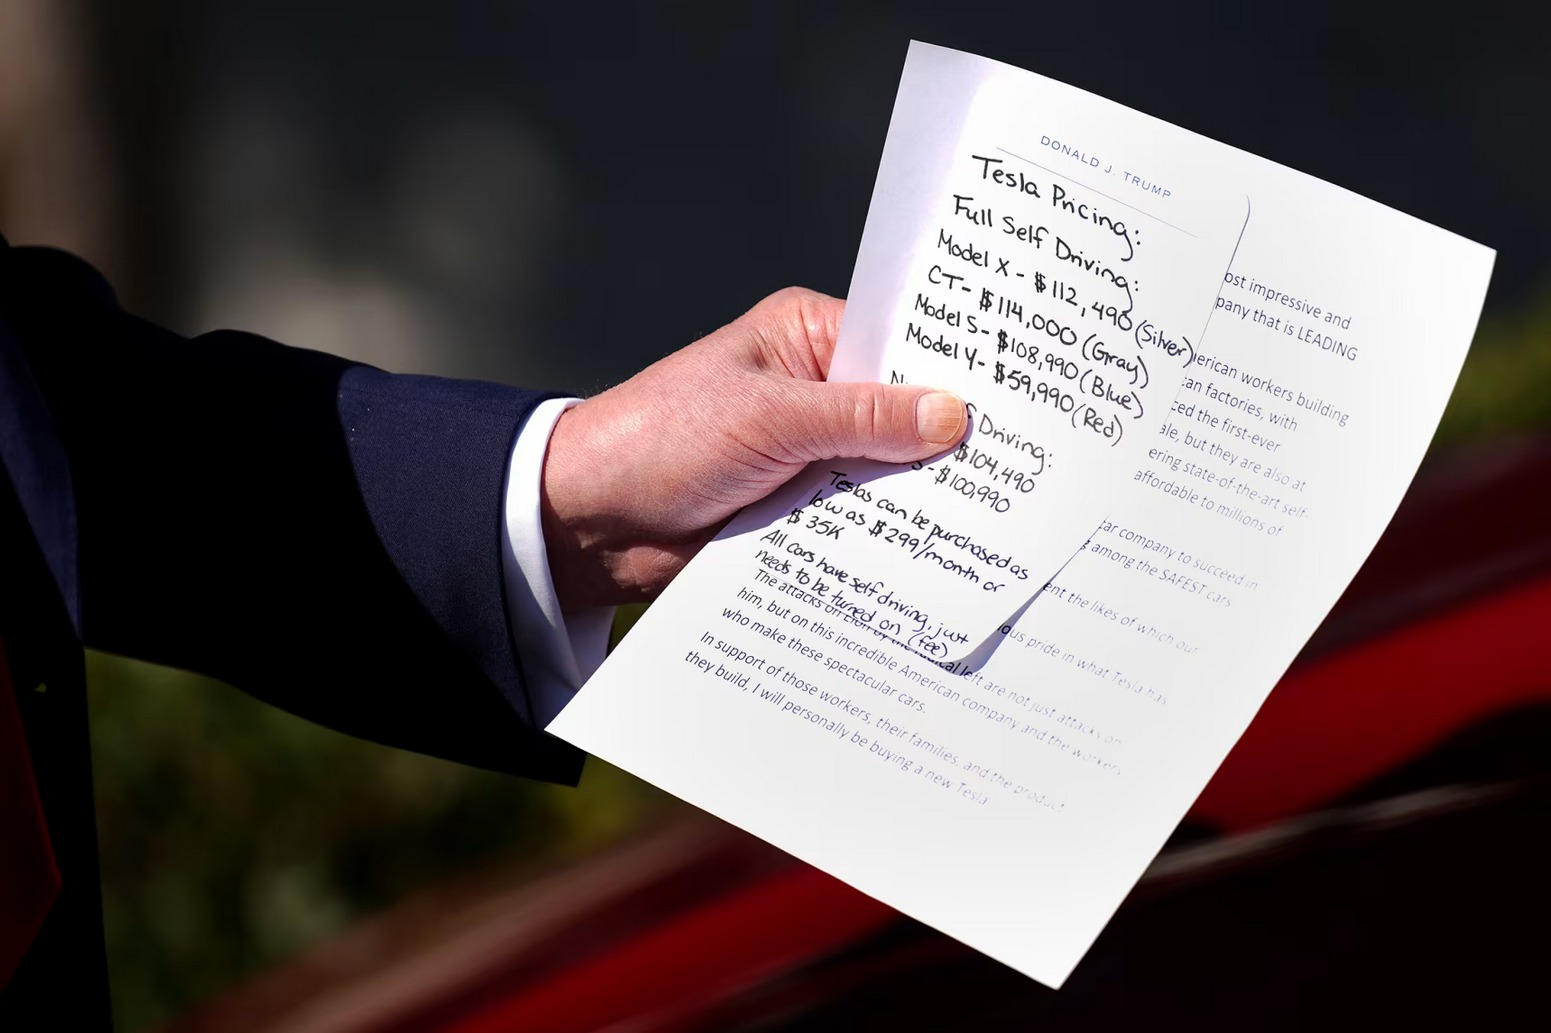 DONALD J. TRUMP
Tesla Pricing:
Full Self Driving:
Model X - $112,490 (Silver)
CT - $114,000 (Gray)
Model S - $108,990 (Blue)
Model Y - $59,990 (Red)
Driving:
$104,490
S - $100,990
Teslas can be purchased as
low as $299/month or
$35K
All cars have self driving, just
needs to be turned on (fee)
ost impressive and
pany that is LEADING
erican workers building
can factories, with
ced the first-ever
ale, but they are also at
ering state-of-the-art self-
affordable to millions of
car company to succeed in
s among the SAFEST cars
ent the likes of which our
ious pride in what Tesla has
The attacks on Elon by the radical left are not just attacks on
him, but on this incredible American company and the workers
who make these spectacular cars.
In support of those workers, their families, and the product
they build, I will personally be buying a new Tesla